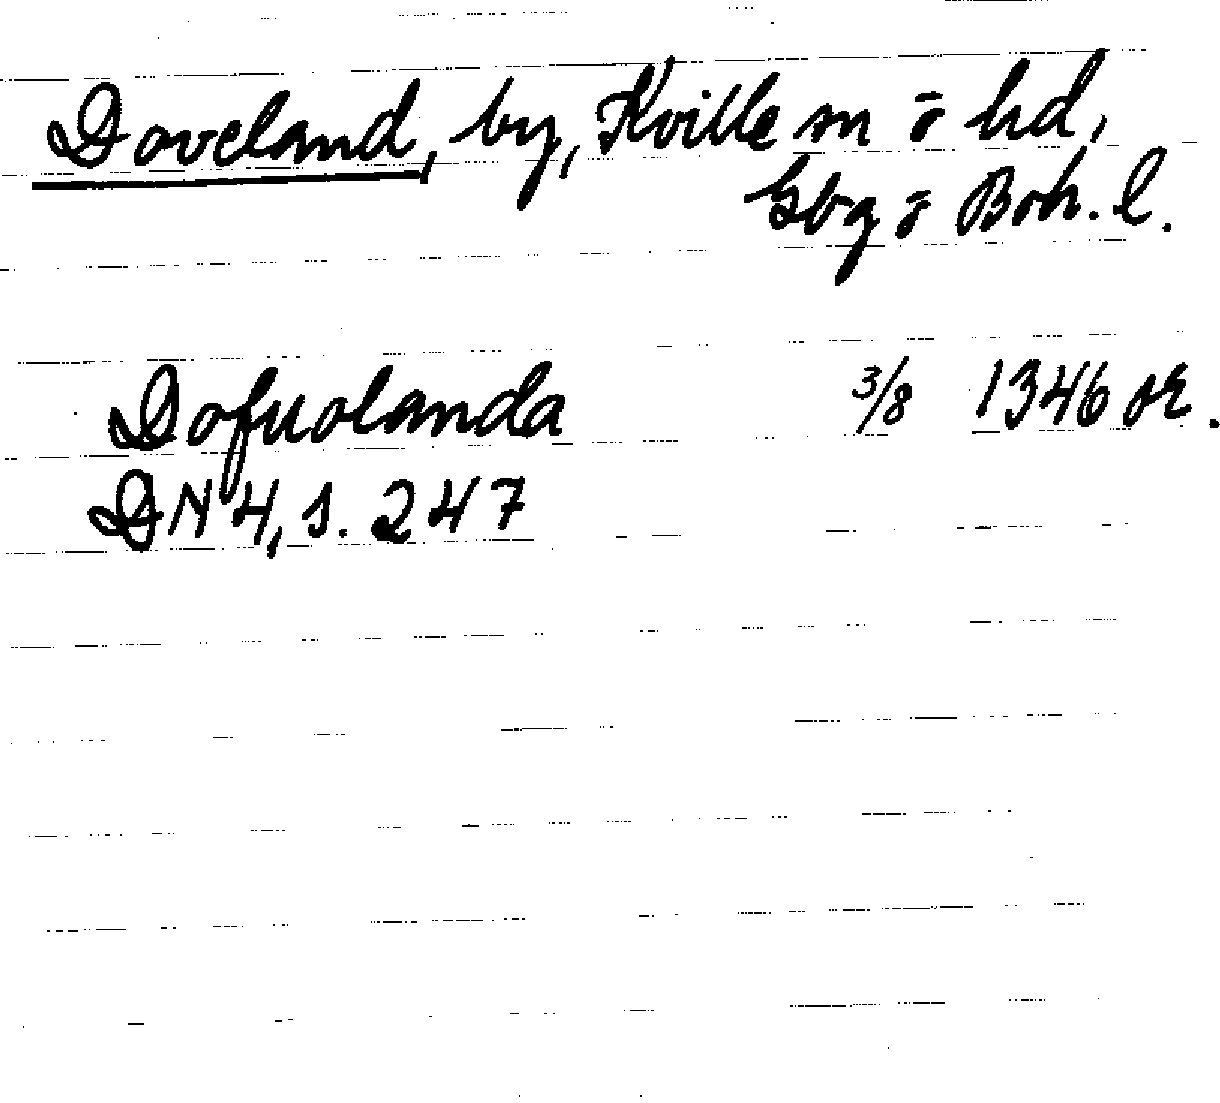 Doveland, by, Kville sn ō hd,
Gbg ō Boh. l.
Dofuolanda 3/8 1346 or.
DN 4, s. 247